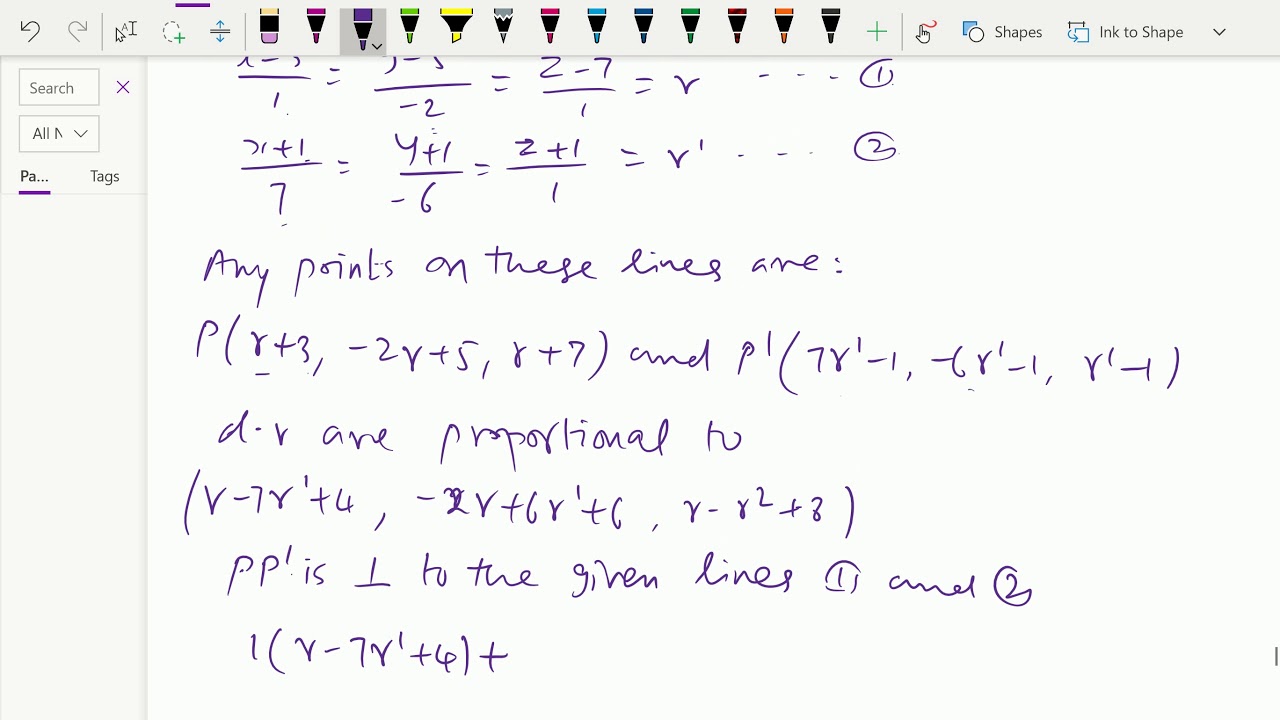 Shapes Ink to Shape
Search
All N
Pa... Tags
/1 = /-2 = z-7/1 = r ---- ①
x+1/7 = y+1/-6 = z+1/1 = r' ---- ②
Any points on these lines are:
P(r+3, -2r+5, r+7) and P'(7r'-1, -6r'-1, r'-1)
d.r are proportional to
(r-7r'+4, -2r+6r'+6, r-r²+8)
PP' is ⊥ to the given lines ① and ②
1(r-7r'+4)+